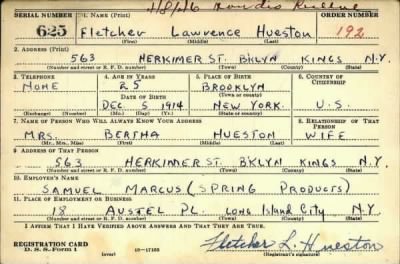 SERIAL NUMBER 1. NAME (Print) ORDER NUMBER
625 Fletcher Lawrence Hueston 192
(First) (Middle) (Last)
2. ADDRESS (Print)
563 HERKIMER ST. BKLYN KINGS N.Y.
(Number and street or R. F. D. number) (Town) (County) (State)
3. TELEPHONE 4. AGE IN YEARS 5. PLACE OF BIRTH 6. COUNTRY OF CITIZENSHIP
NONE 25 BROOKLYN
(Town or county)
DATE OF BIRTH
DEC 5 1914 NEW YORK. U.S.
(Mo.) (Day) (Yr.) (State or country)
7. NAME OF PERSON WHO WILL ALWAYS KNOW YOUR ADDRESS 8. RELATIONSHIP OF THAT PERSON
MRS. BERTHA HUESTON WIFE
(Mr., Mrs., Miss) (First) (Middle) (Last)
9. ADDRESS OF THAT PERSON
563 HERKIMER ST. BKLYN KINGS N.Y.
(Number and street or R. F. D. number) (Town) (County) (State)
10. EMPLOYER'S NAME
SAMUEL MARCUS (SPRING PRODUCTS)
11. PLACE OF EMPLOYMENT OR BUSINESS
18 AUSTEL PL. LONG ISLAND CITY N.Y.
(Number and street or R. F. D. number) (Town) (County) (State)
I AFFIRM THAT I HAVE VERIFIED ABOVE ANSWERS AND THAT THEY ARE TRUE.
REGISTRATION CARD
D. S. S. Form 1 (over) 16-17105 Fletcher L. Hueston
(Registrant's signature)